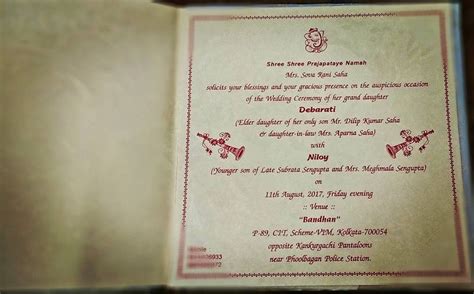 Shree Shree Prajapataye Namah
Mrs. Sova Rani Saha
solicits your blessings and your gracious presence on the auspicious occasion
of the Wedding Ceremony of her grand daughter
Debarati
(Elder daughter of her only son Mr. Dilip Kumar Saha
& daughter-in-law Mrs. Aparna Saha)
with
Niloy
(Younger son of Late Subrata Sengupta and Mrs. Meghmala Sengupta)
on
11th August, 2017, Friday evening
:: Venue ::
"Bandhan"
P-89, CIT, Scheme-VIM, Kolkata-700054
opposite Kankurgachi Pantaloons
near Phoolbagan Police Station.